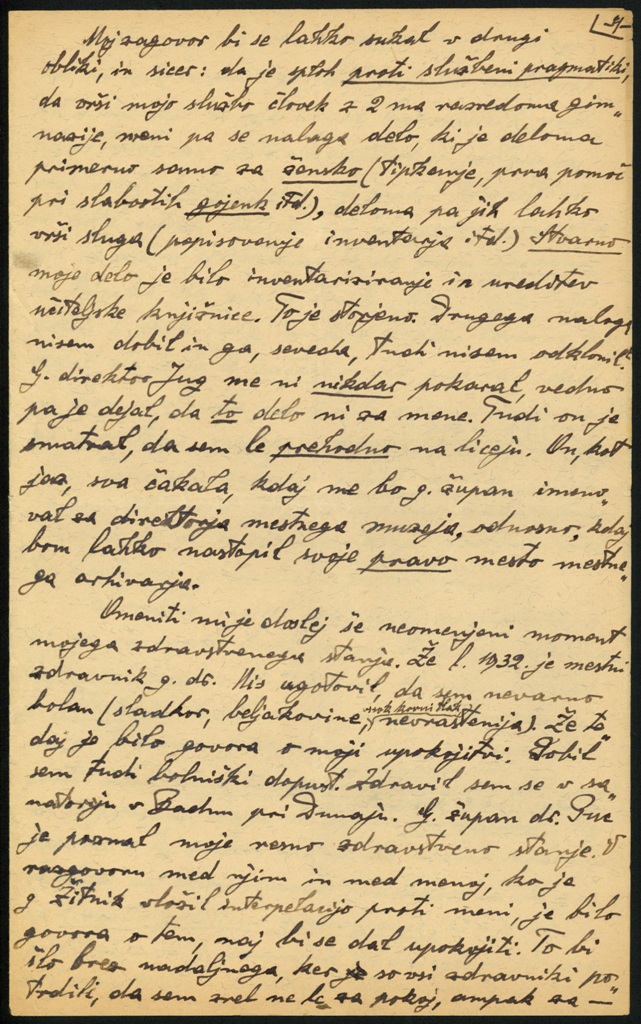 9
Moj zagovor bi se lahko sukal v drugi
obliki, in sicer: da je sploh proti službeni pragmatiki,
da vrši mojo službo človek z 2 ma razredoma gim„
nazije, meni pa se nalaga delo, ki je deloma
primerno samo za žensko (tipkanje, prva pomoč
pri slabostih gojenk itd.), deloma pa jih lahko
vrši sluga (popisovanje inventarja itd.) Stvarno
moje delo je bilo inventariziranje in ureditev
učiteljske knjižnice. To je storjeno. Drugega naloga
nisem dobil in ga, seveda, tudi nisem odklonil.
G. direktor Jug me ni nikdar pokaral, vedno
pa je dejal, da to delo ni za mene. Tudi on je
smatral, da sem le prehodno na liceju. On, kot
jaz, sva čakala, kdaj me bo g. župan imeno„
val za direktorja mestnega muzeja, odnosno, kdaj
bom lahko nastopil svoje pravo mesto mestne„
ga arhivarja.
Omeniti mi je doslej še neomenjeni moment
mojega zdravstvenega stanja. Že l. 1932. je mestni
zdravnik g. dr. Mis ugotovil, da sem nevarno
bolan (sladkor, beljakovine, visok krvni tlak, nevrastenija). Že ta„
daj je bilo govora o moji upokojitvi. Dobil
sem tudi bolniški dopust. Zdravil sem se v sa„
natoriju v Badnu pri Dunaju. G. župan dr. Puc
je poznal moje resno zdravstveno stanje. V
razgovoru med njim in med menoj, ko je
g Žitnik vložil interpelacijo proti meni, je bilo
govora o tem, naj bi se dal upokojiti. To bi
šlo brez nadaljnega, ker so vsi zdravniki po„
trdili, da sem zrel ne le za pokoj, ampak za —